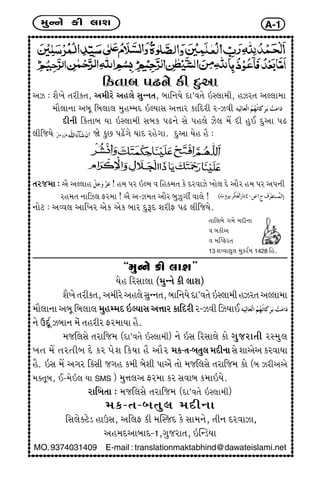 મુન્ને કી લાશ
A-1
اَلْحَمْدُ لِلّٰهِ رَبِّ الْعٰلَمِيْنَ وَالصَّلٰوةُ وَالسَّلَامُ عَلٰى سَيِّدِ الْمُرْسَلِيْنَ
اَمَّا بَعْدُ فَاَعُوْذُ بِاللّٰهِ مِنَ الشَّيْطٰنِ الرَّجِيْمِ بِسْمِ اللّٰهِ الرَّحْمٰنِ الرَّحِيْمِ
કિતાબ પઢને કી દુઆ
અઝ : શૈખે તરીકત, અમીરે અહલે સુન્નત, બાનિયે દા'વતે ઇસ્લામી, હઝરત અલ્લામા
મૌલાના અબૂ બિલાલ મુહમ્મદ ઇલ્યાસ અત્તાર કાદિરી ર-ઝવી دَامَتْ بَرَكَاتُهُمُ الْعَالِيَه
દીની કિતાબ યા ઇસ્લામી સબક પઢને સે પહલે ઝૈલ મેં દી હુઈ દુઆ પઢ
લીજિયે اِنْ شَآءَ اللّٰه عَزَّوَجَلَّ જો કુછ પઢેંગે યાદ રહેગા. દુઆ યેહ હૈ :
اَللّٰهُمَّ افْتَحْ عَلَيْنَا حِكْمَتَكَ وَانْشُرْ
عَلَيْنَا رَحْمَتَكَ يَا ذَا الْجَلَالِ وَالْاِكْرَام
તરજમા : ઐ અલ્લાહ عَزَّوَجَلَّ ! હમ પર ઇલ્મ વ હિકમત કે દરવાઝે ખોલ દે ઔર હમ પર અપની
રહમત નાઝિલ ફરમા ! ઐ અ-ઝમત ઔર બુઝુર્ગી વાલે !
નોટ : અવ્વલ આખિર એક એક બાર દુરૂદ શરીફ પઢ લીજિયે.
તાલિબે ગમે મદીના
વ બકીઅ
વ મગ્ફિરત
13 શવ્વાલુલ મુકર્રમ 1428 હિ.
“મુન્ને કી લાશ”
યેહ રિસાલા (મુન્ને કી લાશ)
શૈખે તરીકત, અમીરે અહલે સુન્નત, બાનિયે દા'વતે ઇસ્લામી હઝરત અલ્લામા
મૌલાના અબૂ બિલાલ મુહમ્મદ ઇલ્યાસ અત્તાર કાદિરી ર-ઝવી ઝિયાઈ دَامَتْ بَرَكَاتُهُمُ الْعَالِيَه
ને ઉર્દૂ ઝબાન મેં તહરીર ફરમાયા હૈ.
મજલિસે તરાજિમ (દા'વતે ઇસ્લામી) ને ઇસ રિસાલે કો ગુજરાતી રસ્મુલ
ખત મેં તરતીબ દે કર પેશ કિયા હૈ ઔર મક-ત-બતુલ મદીના સે શાએઅ કરવાયા
હૈ. ઇસ મેં અગર કિસી જગહ કમી બેશી પાએં તો મજલિસે તરાજિમ કો (બ ઝરીઅએ
મક્તૂબ, ઈ-મેઇલ યા SMS ) મુત્તલઅ ફરમા કર સવાબ કમાઇયે.
રાબિતા : મજલિસે તરાજિમ (દા'વતે ઇસ્લામી)
મક-ત-બતુલ મદીના
સિલેક્ટેડ હાઉસ, અલિફ કી મસ્જિદ કે સામને, તીન દરવાઝા,
અહમદઆબાદ-1,ગુજરાત, ઇન્ડિયા
MO. 9374031409 E-mail : translationmaktabhind@dawateislami.net